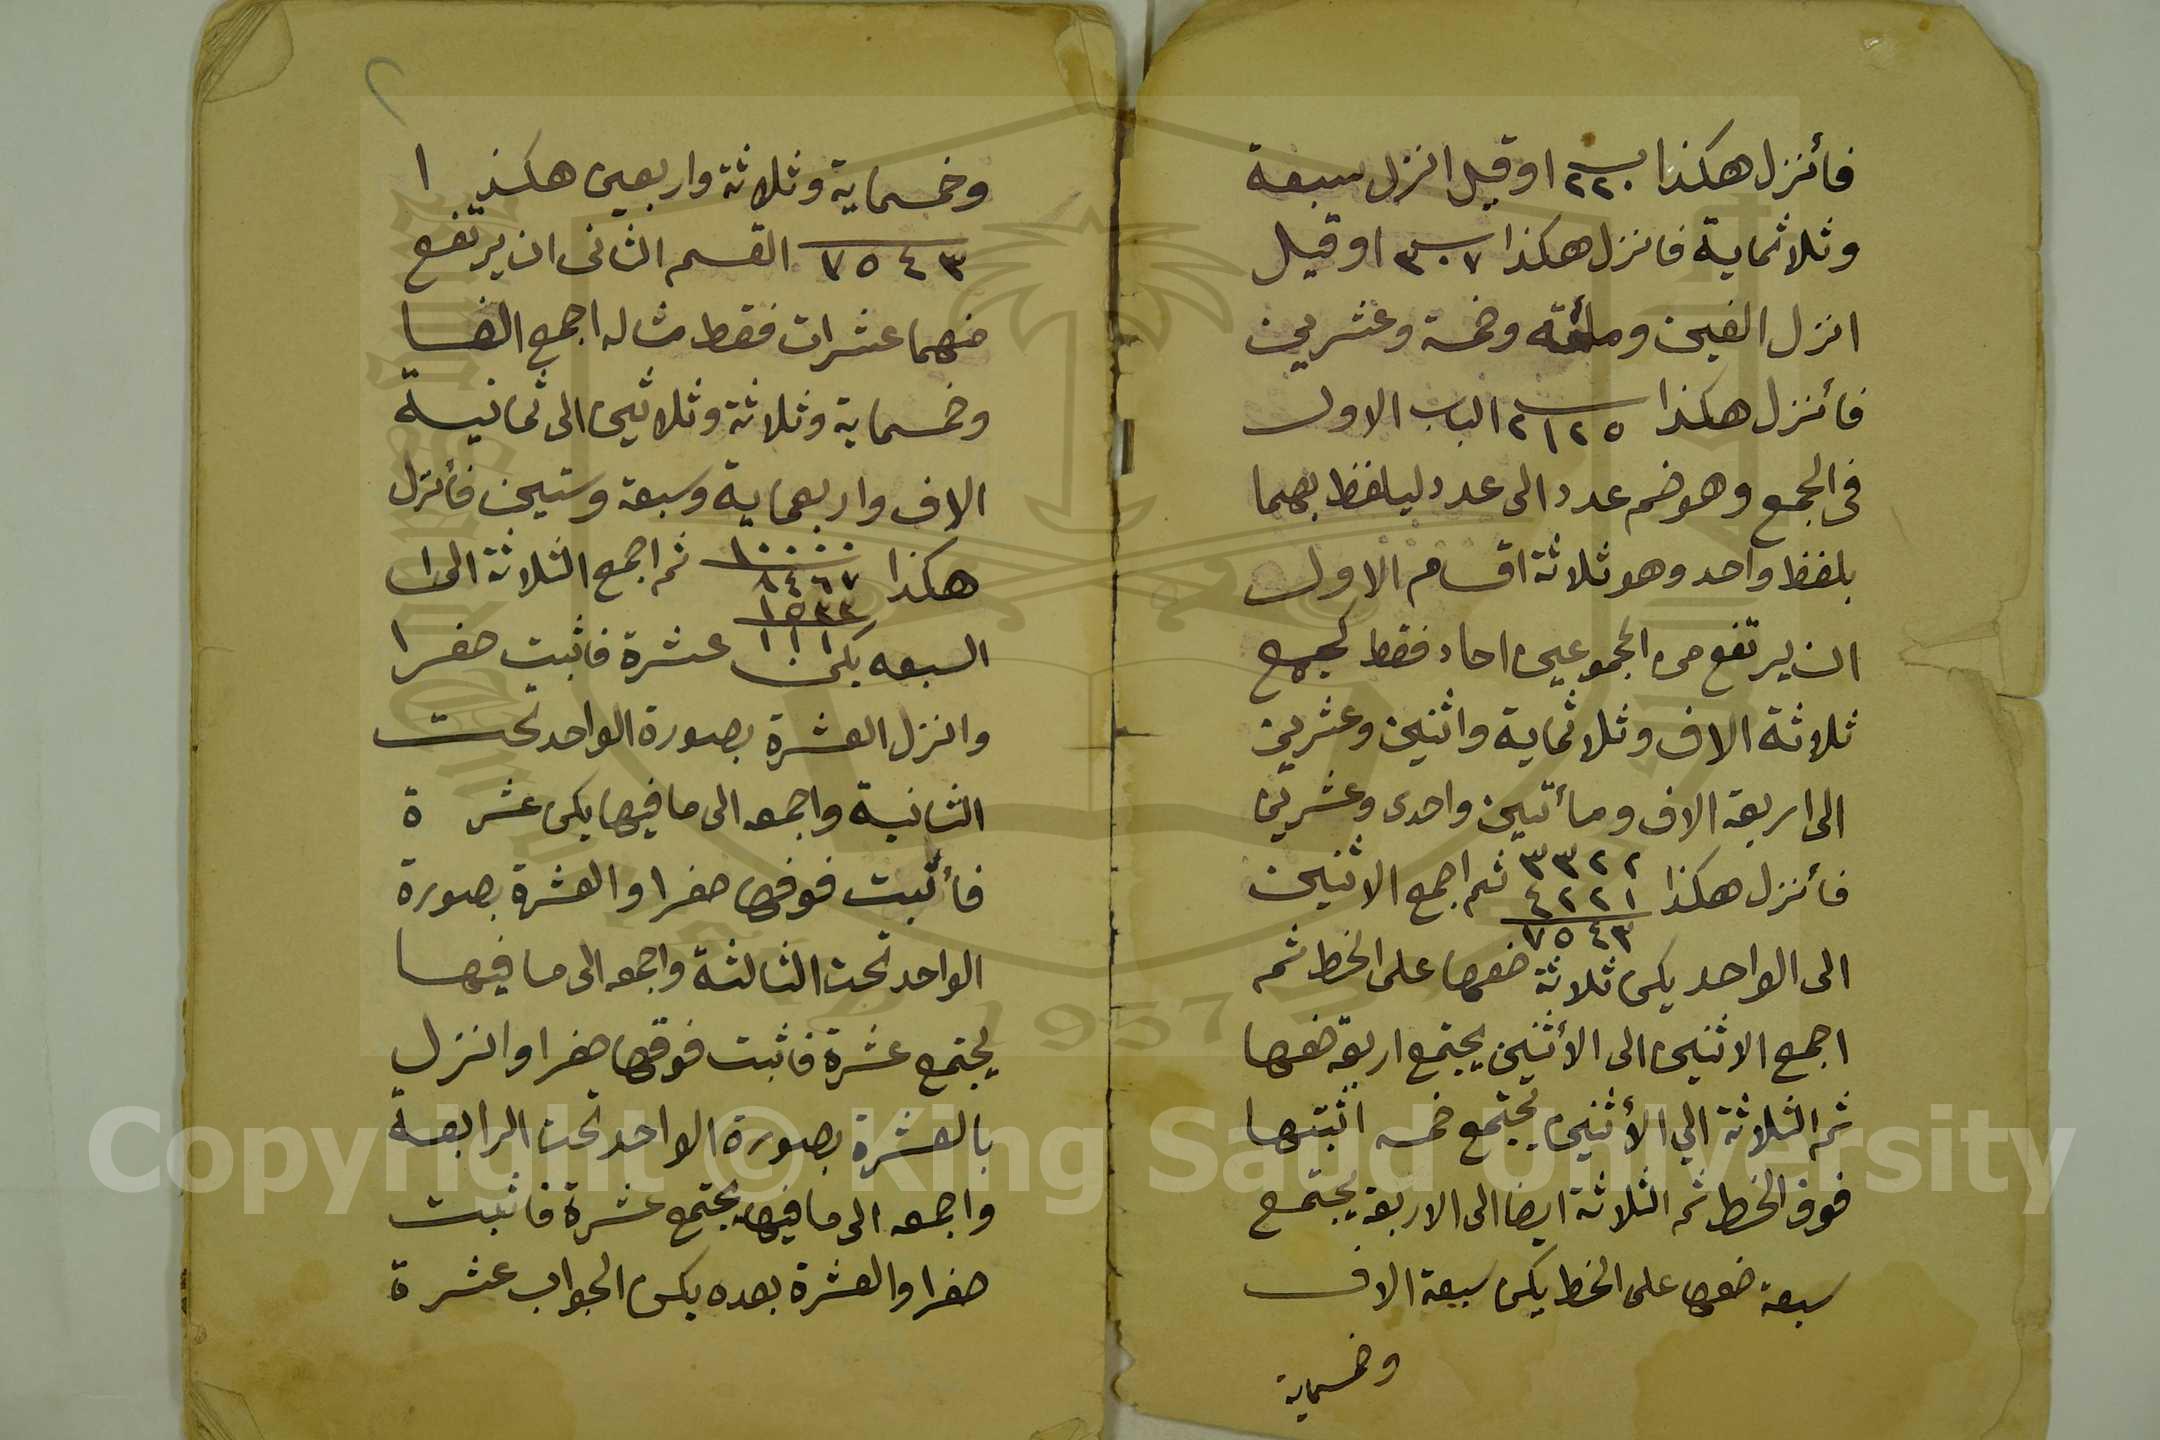 فأنزل هكذا ٢٢٠ او قيل انزل سبعة
وثلاثماية فانزل هكذا ٣٠٧ او قيل
انزل الفين ومائة وخمسة وعشرين
فأنزل هكذا ٢١٢٥ الباب الاول
فى الجمع وهو ضم عدد الى عدد ليلفظ بهما
بلفظ واحد وهو ثلاثة اقسام الاول
ان يرتفع من المجموعين احاد فقط كجمع
ثلاثة الاف وثلاثماية واثنين وعشرين
الى اربعة الاف ومأتين واحدى وعشرين
فأنزل هكذا ٣٣٢٢ ثم اجمع الاثنين
٤٢٢١
٧٥٤٣
الى الواحد يكن ثلاثة ضعها على الخط ثم
اجمع الاثنين الى الأثنين يجتمع اربعة ضعها
ثم الثلاثة الي الأثنين يجتمع خمسه اثبتها
فوق الخط ثم الثلاثة ايضا الى الاربعة يجتمع
سبعة ضعها على الخط يكن سبعة الاف
وخمسماية
وخمسماية وثلاثة واربعين هكذا
٧٥٤٣ القسم الثانى ان يرتفع
منهما عشرات فقط مثاله اجمع الفا
وخمسماية وثلاثة وثلاثين الى ثمانية
الاف واربعماية وسبعة وستين فأنزل
هكذا ١٠٠٠٠ ثم اجمع الثلاثة الى
٨٤٦٧
١٥٣٣
١١١
السبعه يكن عشرة فاثبت صفرا
وانزل العشرة بصورة الواحد تحت
الثانية واجمعه الى ما فيها يكن عشرة
فأثبت فوقها صفرا والعشرة بصورة
الواحد تحت الثالثة واجمعه الى ما فيها
يجتمع عشرة فاثبت فوقها صفرا وانزل
بالعشرة بصورة الواحد تحت الرابعة
واجمعه الى ما فيها يجتمع عشرة فاثبت
صفرا والعشرة بعده يكن الجواب عشرة
Copyright © King Saud University
1957